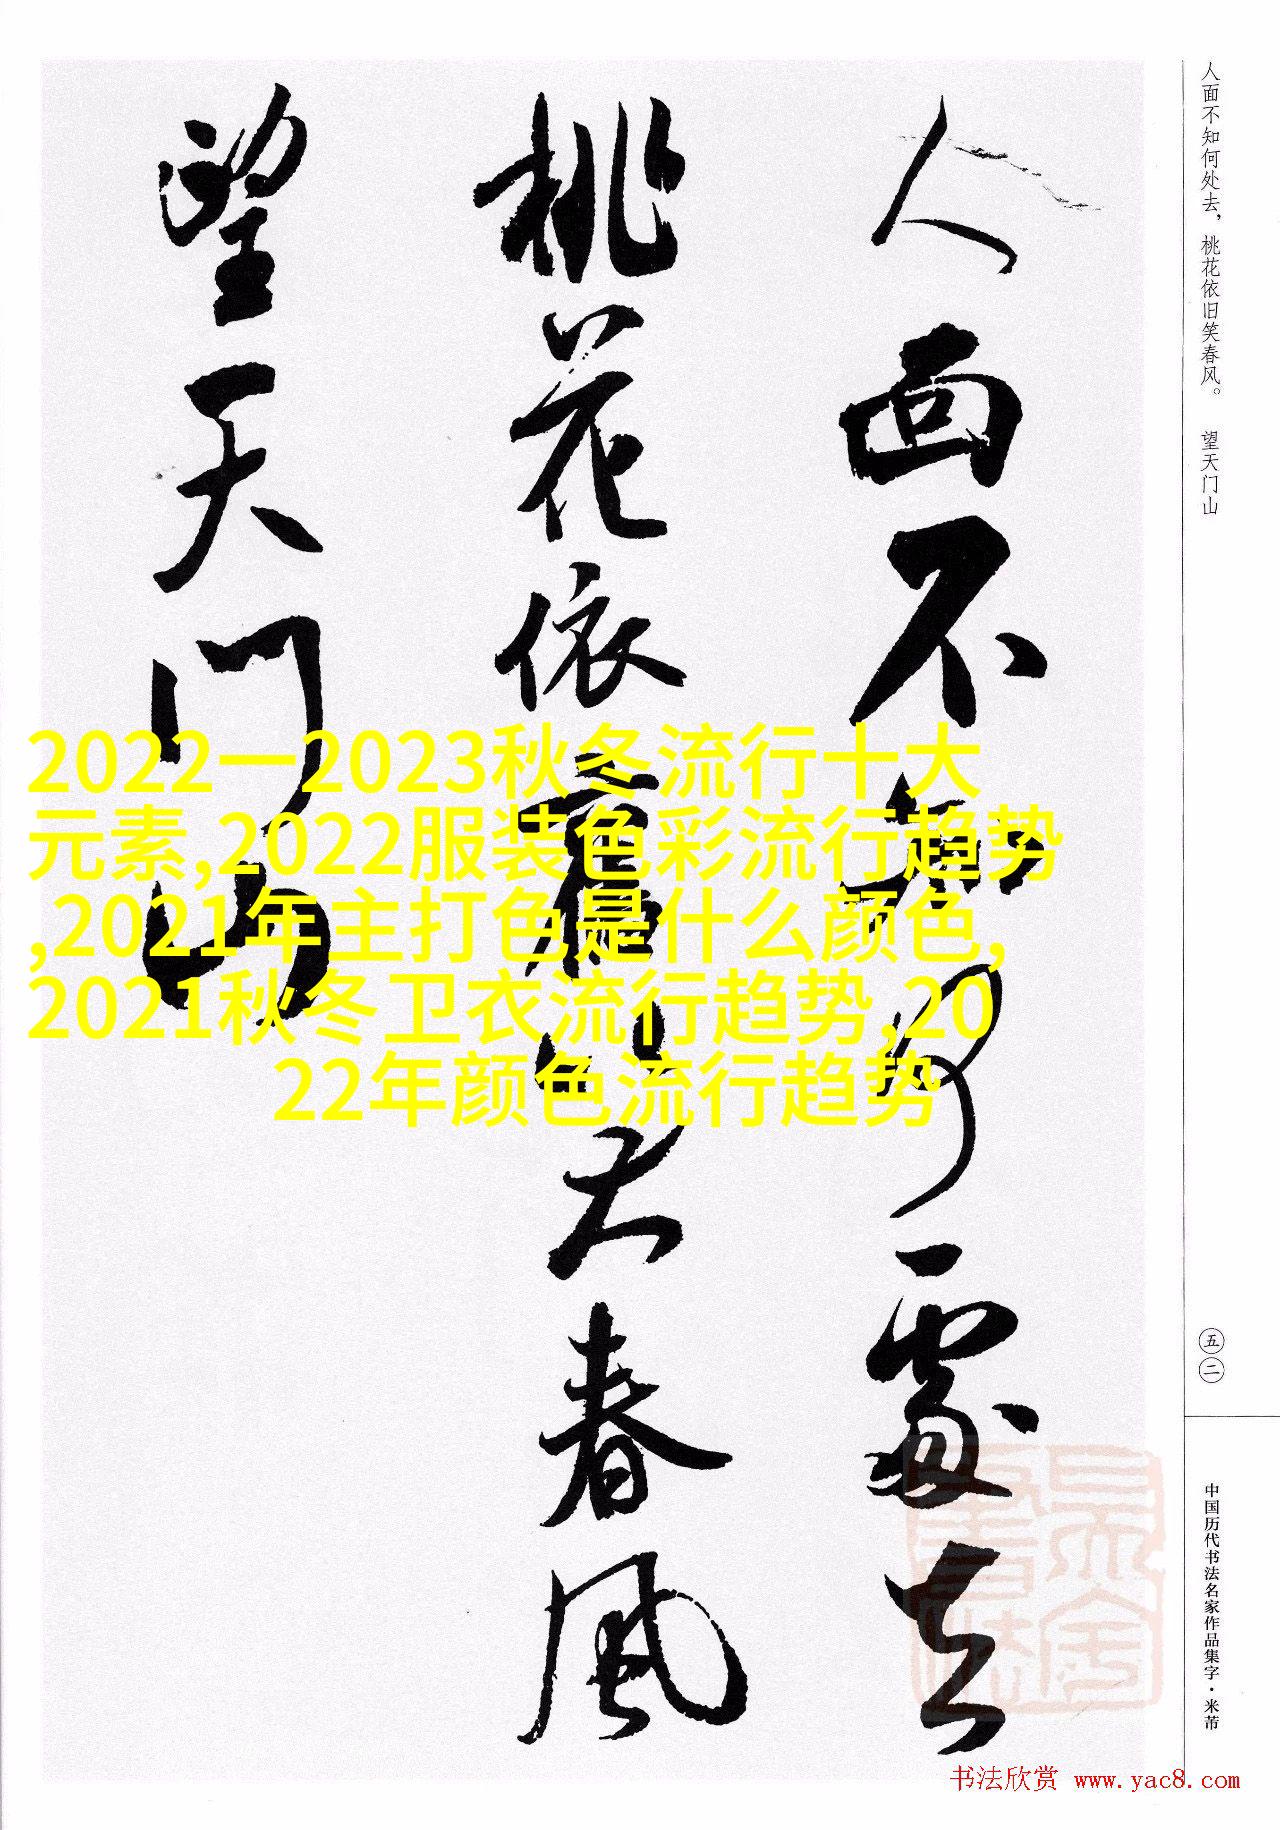 人面不知何處去
桃花依舊笑春风
望天门山
人面不知何处去，桃花依旧笑春风。 望天门山
2022一2023秋冬流行十大
元素,2022服装色彩流行趋势
,2021年主打色是什么颜色,
2021秋冬卫衣流行趋势,20
22年颜色流行趋势
五二
中国历代书法名家作品集字·米芾
书法欣赏 www.yac8.com